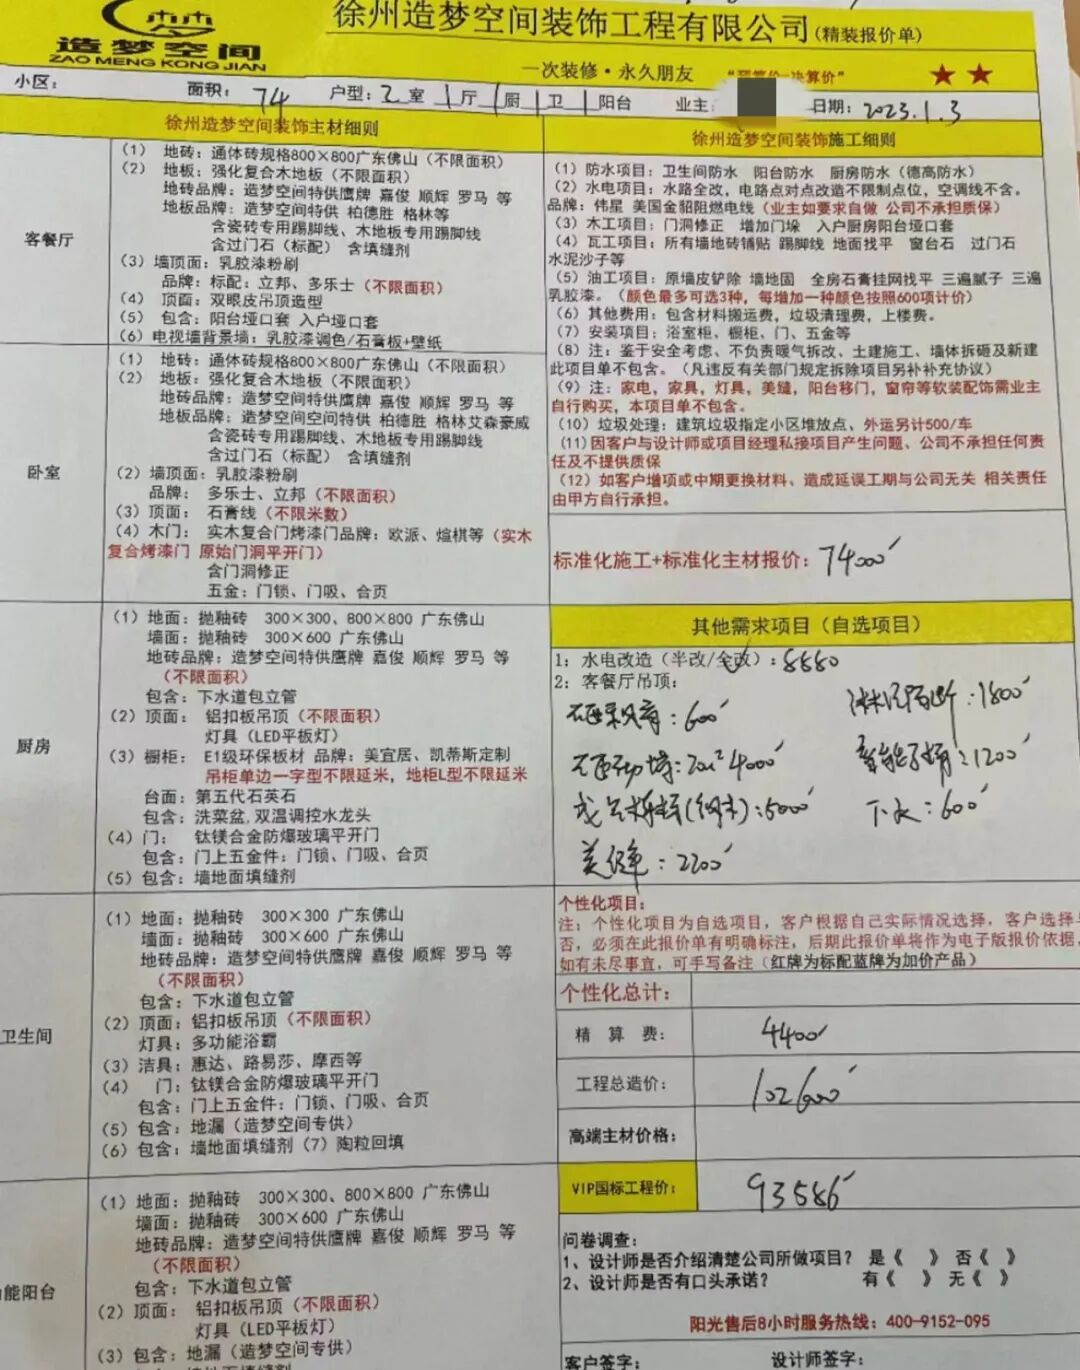 徐州造梦空间装饰工程有限公司(精装报价单)
造梦空间
ZAO MENG KONG JIAN
一次装修·永久朋友 “预算价=决算价”
小区： 面积：74 户型：2室1厅1厨1卫 阳台 业主： 日期：2023.1.3
徐州造梦空间装饰主材细则
客餐厅
（1） 地砖：通体砖规格800×800广东佛山（不限面积）
（2） 地板：强化复合木地板（不限面积）
地砖品牌：造梦空间特供鹰牌 嘉俊 顺辉 罗马 等
地板品牌：造梦空间特供 柏德胜 格林等
含瓷砖专用踢脚线、木地板专用踢脚线
含过门石（标配） 含填缝剂
（3）墙顶面：乳胶漆粉刷
品牌：标配：立邦、多乐士（不限面积）
（4） 顶面：双眼皮吊顶造型
（5） 包含：阳台垭口套 入户垭口套
（6）电视墙背景墙：乳胶漆调色/石膏板+壁纸
卧室
（1） 地砖：通体砖规格800×800广东佛山（不限面积）
（2） 地板：强化复合木地板（不限面积）
地砖品牌：造梦空间特供鹰牌 嘉俊 顺辉 罗马 等
地板品牌：造梦空间空间特供 柏德胜 格林艾森豪威
含瓷砖专用踢脚线、木地板专用踢脚线
含过门石（标配） 含填缝剂
（2）墙顶面：乳胶漆粉刷
品牌： 多乐士、立邦（不限面积）
（3）顶面： 石膏线（不限米数）
（4）木门： 实木复合门烤漆门品牌：欧派、煊棋等（实木
复合烤漆门 原始门洞平开门）
含门洞修正
五金：门锁、门吸、合页
厨房
（1）地面：抛釉砖 300×300、800×800 广东佛山
墙面：抛釉砖 300×600 广东佛山
地砖品牌：造梦空间特供鹰牌 嘉俊 顺辉 罗马 等
（不限面积）
包含：下水道包立管
（2）顶面： 铝扣板吊顶（不限面积）
灯具（LED平板灯）
（3）橱柜： E1级环保板材 品牌：美宜居、凯蒂斯定制
吊柜单边一字型不限延米，地柜L型不限延米
台面：第五代石英石
包含：洗菜盆,双温调控水龙头
（4）门： 钛镁合金防爆玻璃平开门
包含：门上五金件：门锁、门吸、合页
（5）包含：墙地面填缝剂
卫生间
（1）地面：抛釉砖 300×300 广东佛山
墙面：抛釉砖 300×600 广东佛山
地砖品牌：造梦空间特供鹰牌 嘉俊 顺辉 罗马 等
（不限面积）
包含：下水道包立管
（2）顶面：铝扣板吊顶（不限面积）
灯具：多功能浴霸
（3）洁具：惠达、路易莎、摩西等
（4） 门：钛镁合金防爆玻璃平开门
包含：门上五金件：门锁、门吸、合页
（5）包含：地漏（造梦空间专供）
（6）包含：墙地面填缝剂（7）陶粒回填
能阳台
（1）地面：抛釉砖 300×300、800×800 广东佛山
墙面：抛釉砖 300×600 广东佛山
地砖品牌：造梦空间特供鹰牌 嘉俊 顺辉 罗马 等
（不限面积）
包含：下水道包立管
（2）顶面： 铝扣板吊顶（不限面积）
灯具（LED平板灯）
（3）包含：地漏（造梦空间专供）
徐州造梦空间装饰施工细则
（1）防水项目：卫生间防水 阳台防水 厨房防水（德高防水）
（2）水电项目：水路全改，电路点对点改造不限制点位，空调线不含。
品牌：伟星 美国金貂阻燃电线（业主如要求自做 公司不承担质保）
（3）木工项目：门洞修正 增加门垛 入户厨房阳台垭口套
（4）瓦工项目：所有墙地砖铺贴 踢脚线 地面找平 窗台石 过门石
水泥沙子等
（5）油工项目：原墙皮铲除 墙地固 全房石膏挂网找平 三遍腻子 三遍
乳胶漆。（颜色最多可选3种，每增加一种颜色按照600项计价）
（6）其他费用：包含材料搬运费，垃圾清理费，上楼费。
（7）安装项目：浴室柜、橱柜、门、五金等
（8）注：鉴于安全考虑、不负责暖气拆改、土建施工、墙体拆砸及新建
此项目单不包含。（凡违反有关部门规定拆除项目另补补充协议）
（9）注：家电，家具，灯具，美缝，阳台移门，窗帘等软装配饰需业主
自行购买，本项目单不包含。
（10）垃圾处理：建筑垃圾指定小区堆放点、外运另计500/车
（11）因客户与设计师或项目经理私接项目产生问题、公司不承担任何责
任及不提供质保
（12）如客户增项或中期更换材料、造成延误工期与公司无关 相关责任
由甲方自行承担。
标准化施工+标准化主材报价：74000
其他需求项目（自选项目）
1：水电改造（半改/全改）：8880
2：客餐厅吊顶：
：600
淋浴隔断：1800
：20m² 4000
：1200
：5000
下水：600
美缝：2200
个性化项目：
注：个性化项目为自选项目，客户根据自己实际情况选择，客户选择与
否，必须在此报价单有明确标注，后期此报价单将作为电子版报价依据，
如有未尽事宜，可手写备注（红牌为标配蓝牌为加价产品）
个性化总计：
精 算 费： 4400
工程总造价： 102600
高端主材价格：
VIP国标工程价： 93586
问卷调查：
1、设计师是否介绍清楚公司所做项目？ 是《 》 否《 》
2、设计师是否有口头承诺？ 有《 》 无《 》
阳光售后8小时服务热线：400-9152-095
客户签字： 设计师签字：